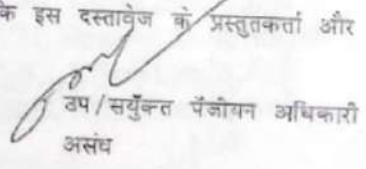 के इस दस्तावेज के प्रस्तुतकर्ता और
उप/सयुँक्त पँजीयन अधिकारी
असंध